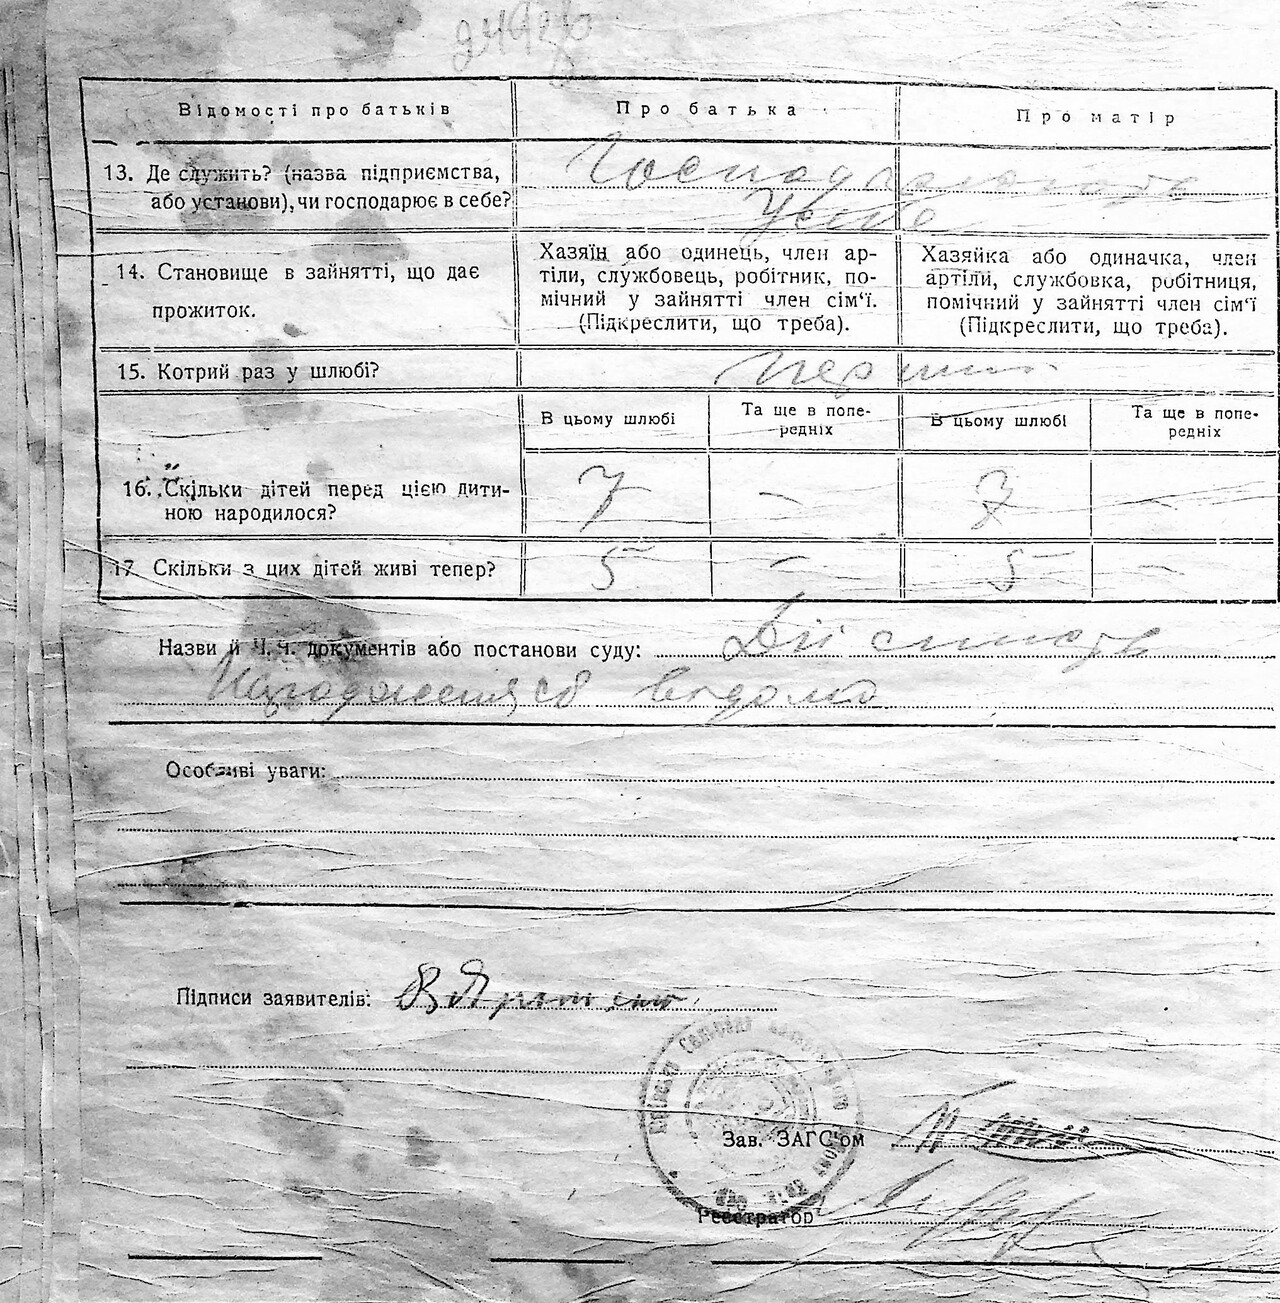 Відомості про батьків
Про батька
Про матір
13. Де служить? (назва підприємства,
або установи), чи господарює в себе?
Господарюють
У себе
14. Становище в зайнятті, що дає
прожиток.
Хазяїн або одинець, член ар-
тіли, службовець, робітник, по-
мічний у зайнятті член сім'ї.
(Підкреслити, що треба).
Хазяйка або одиначка, член
артіли, службовка, робітниця,
помічний у зайнятті член сім'ї
(Підкреслити, що треба).
15. Котрий раз у шлюбі?
Перший
В цьому шлюбі
Та ще в попе-
редніх
В цьому шлюбі
Та ще в попе-
редніх
16. Скільки дітей перед цією дити-
ною народилося?
7 — 7 —
17. Скільки з цих дітей живі тепер?
5 — 5 —
Назви й Ч. Ч. документів або постанови суду: Дійсність
відомо
Особливі уваги:
Підписи заявителів:
Зав. ЗАГС'ом
Реєстратор